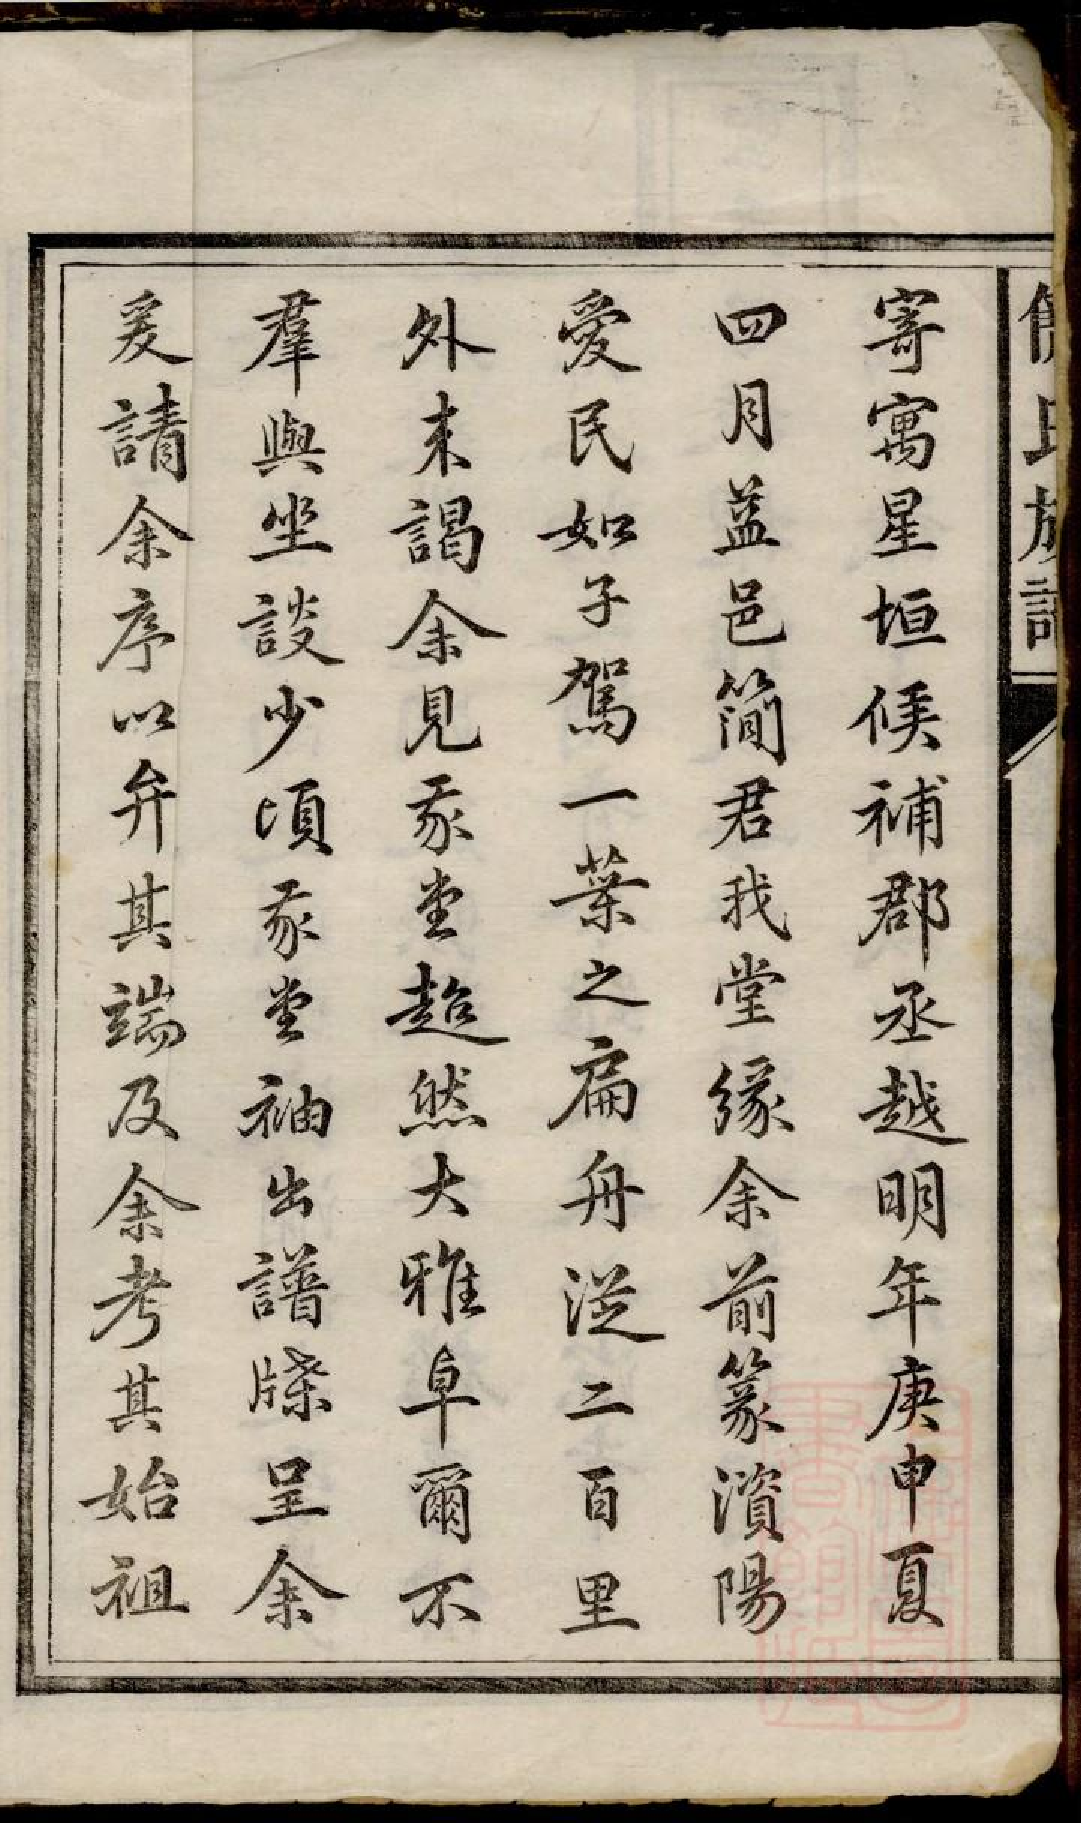 氏族譜
寄寓星垣候補郡丞越明年庚申夏
四月益邑簡君我堂緣余前篆濱陽
愛民如子駕一葉之扁舟從二百里
外來謁余見我堂超然大雅卓爾不
羣與坐談少頃我堂袖出譜牒呈余
爰請余序以弁其端及余考其始祖